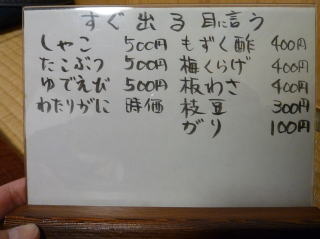 すぐ出る
しゃこ 500円 もずく酢 400円
たこぶつ 500円 梅くらげ 400円
ゆでえび 500円 板わさ 400円
わたりがに 時価 枝豆 300円
がり 100円